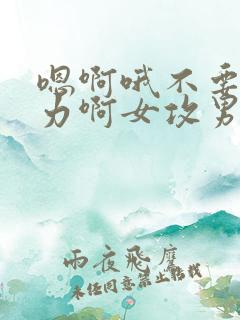 嗯啊哦不要
力啊女攻男
雨夜飞鹰
未经同意禁止转载